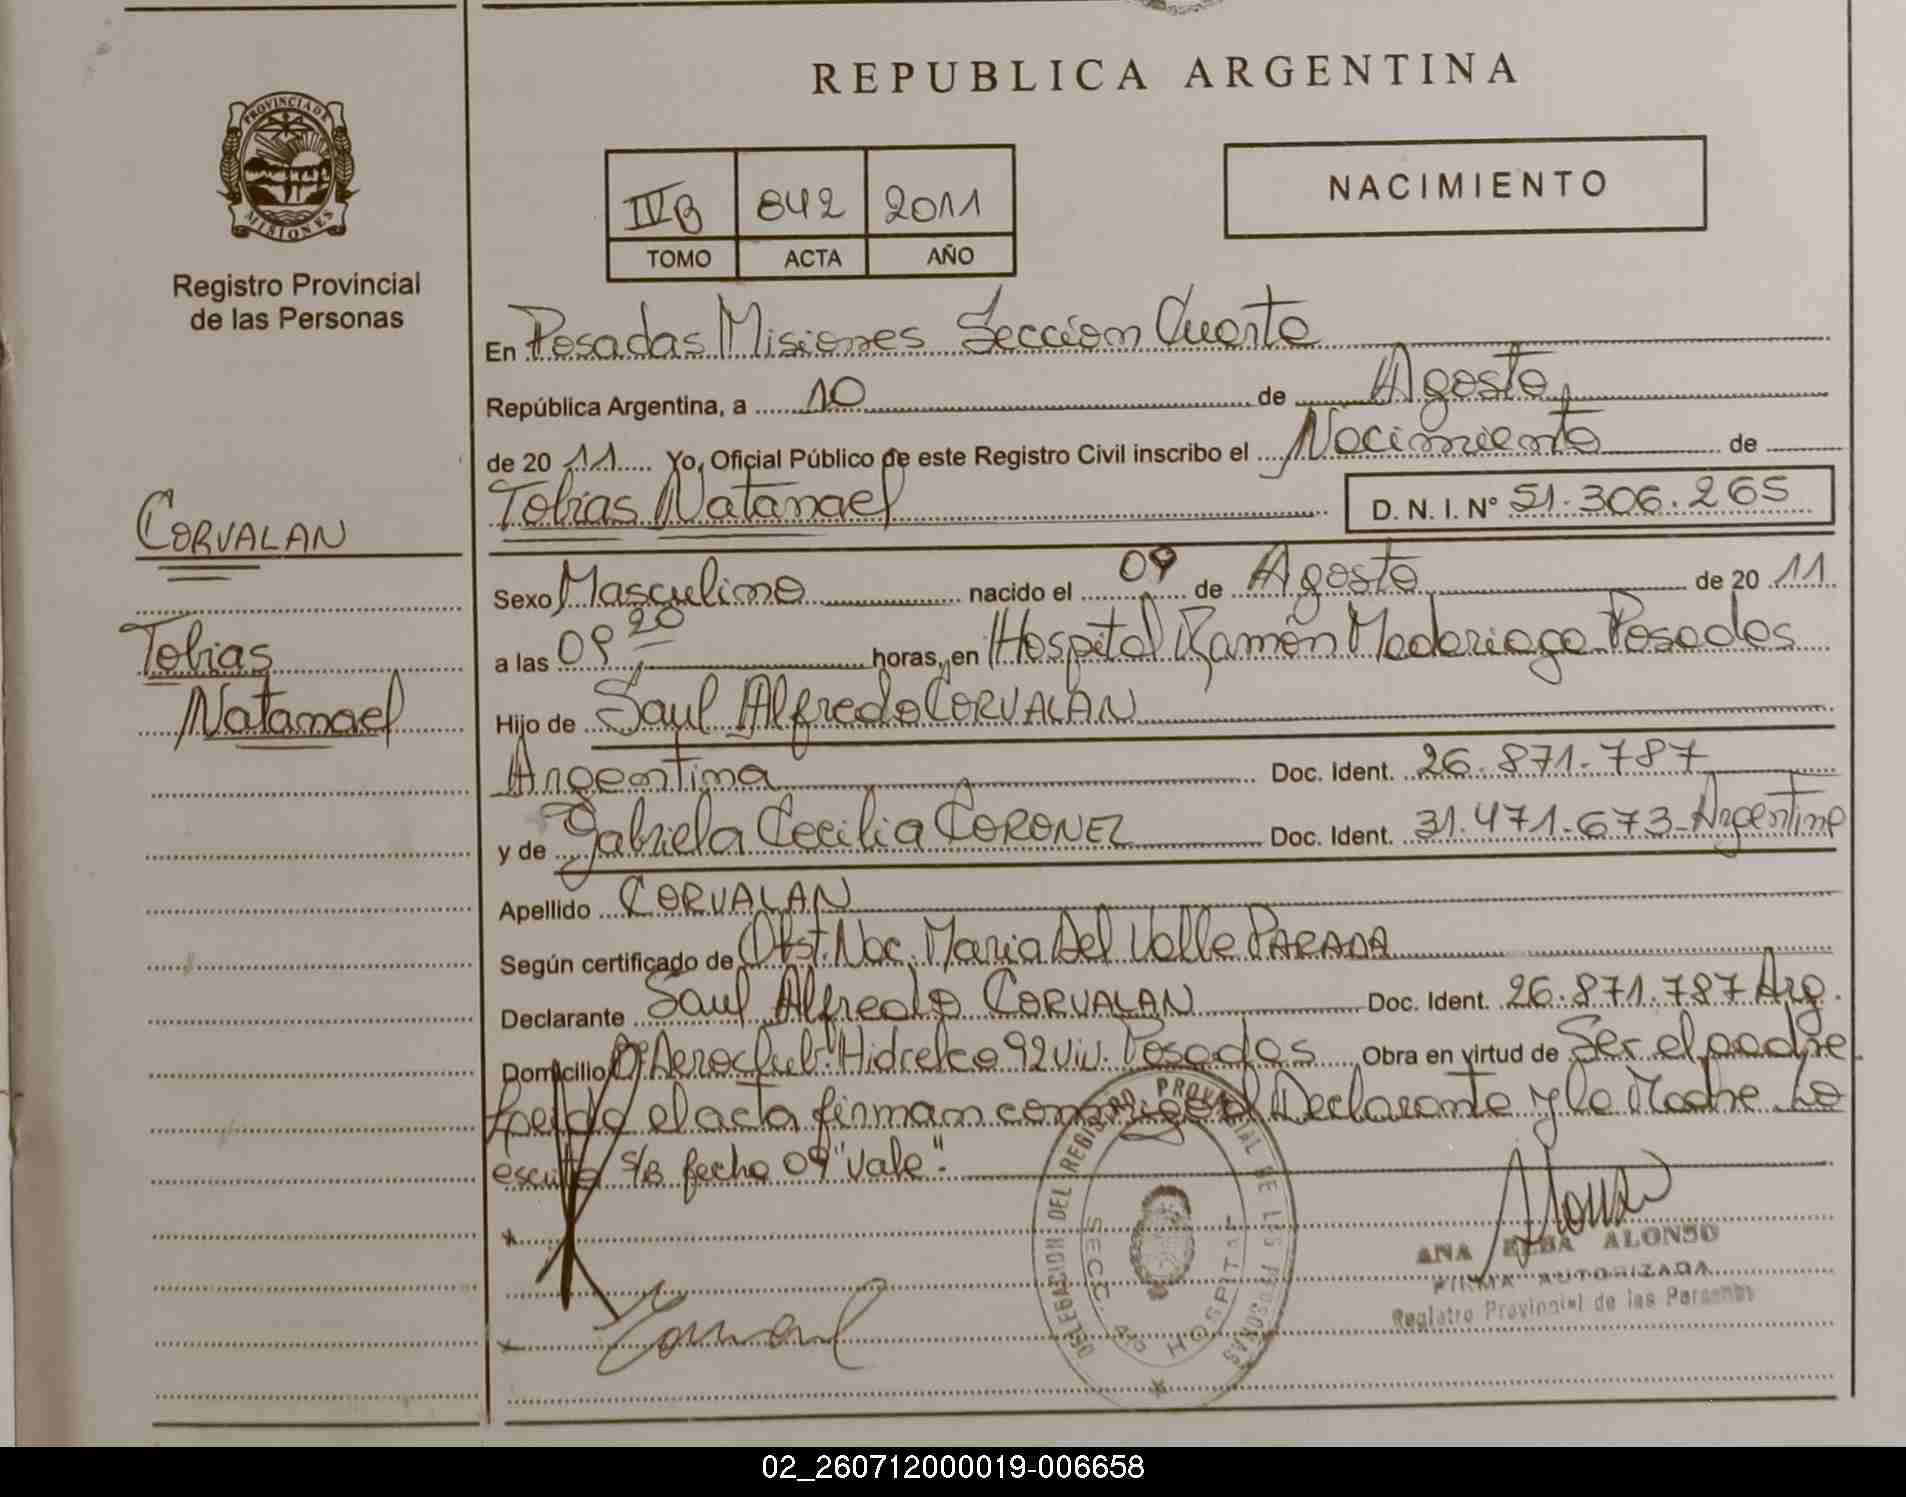 REPUBLICA ARGENTINA
PROVINCIA DE
MISIONES
Registro Provincial
de las Personas
IVB 842 2011
TOMO ACTA AÑO
NACIMIENTO
En Posadas Misiones Seccion Cuarta
República Argentina, a 10 de Agosto
de 20 11 Yo, Oficial Público de este Registro Civil inscribo el Nacimiento de
Tobias Natanael D. N. I. Nº 51.306.265
CORVALAN
Tobias
Natanael
Sexo Masculino nacido el 09 de Agosto de 20 11
a las 09 20 horas, en Hospital Ramón Madariaga Posadas
Hijo de Saul Alfredo CORVALAN
Argentina Doc. Ident. 26.871.787
y de Gabriela Cecilia CORONEL Doc. Ident. 31.471.673-Argentina
Apellido CORVALAN
Según certificado de Obst. Nac. Maria Del Valle PARADA
Declarante Saul Alfredo CORVALAN Doc. Ident. 26.871.787 Arg.
Domicilio Bº Aeroclub Hidrelco 92 Viv. Posadas Obra en virtud de Ser el padre
Leida el acta firman conmigo el Declarante y la Madre Lo
escrito s/B fecha 09 "Vale".
DELEGACION DEL REGISTRO PROVINCIAL DE LAS PERSONAS
SECC. 4º HOSPITAL
ANA ELBA ALONSO
FIRMA AUTORIZADA
Registro Provincial de las Personas
02_260712000019-006658